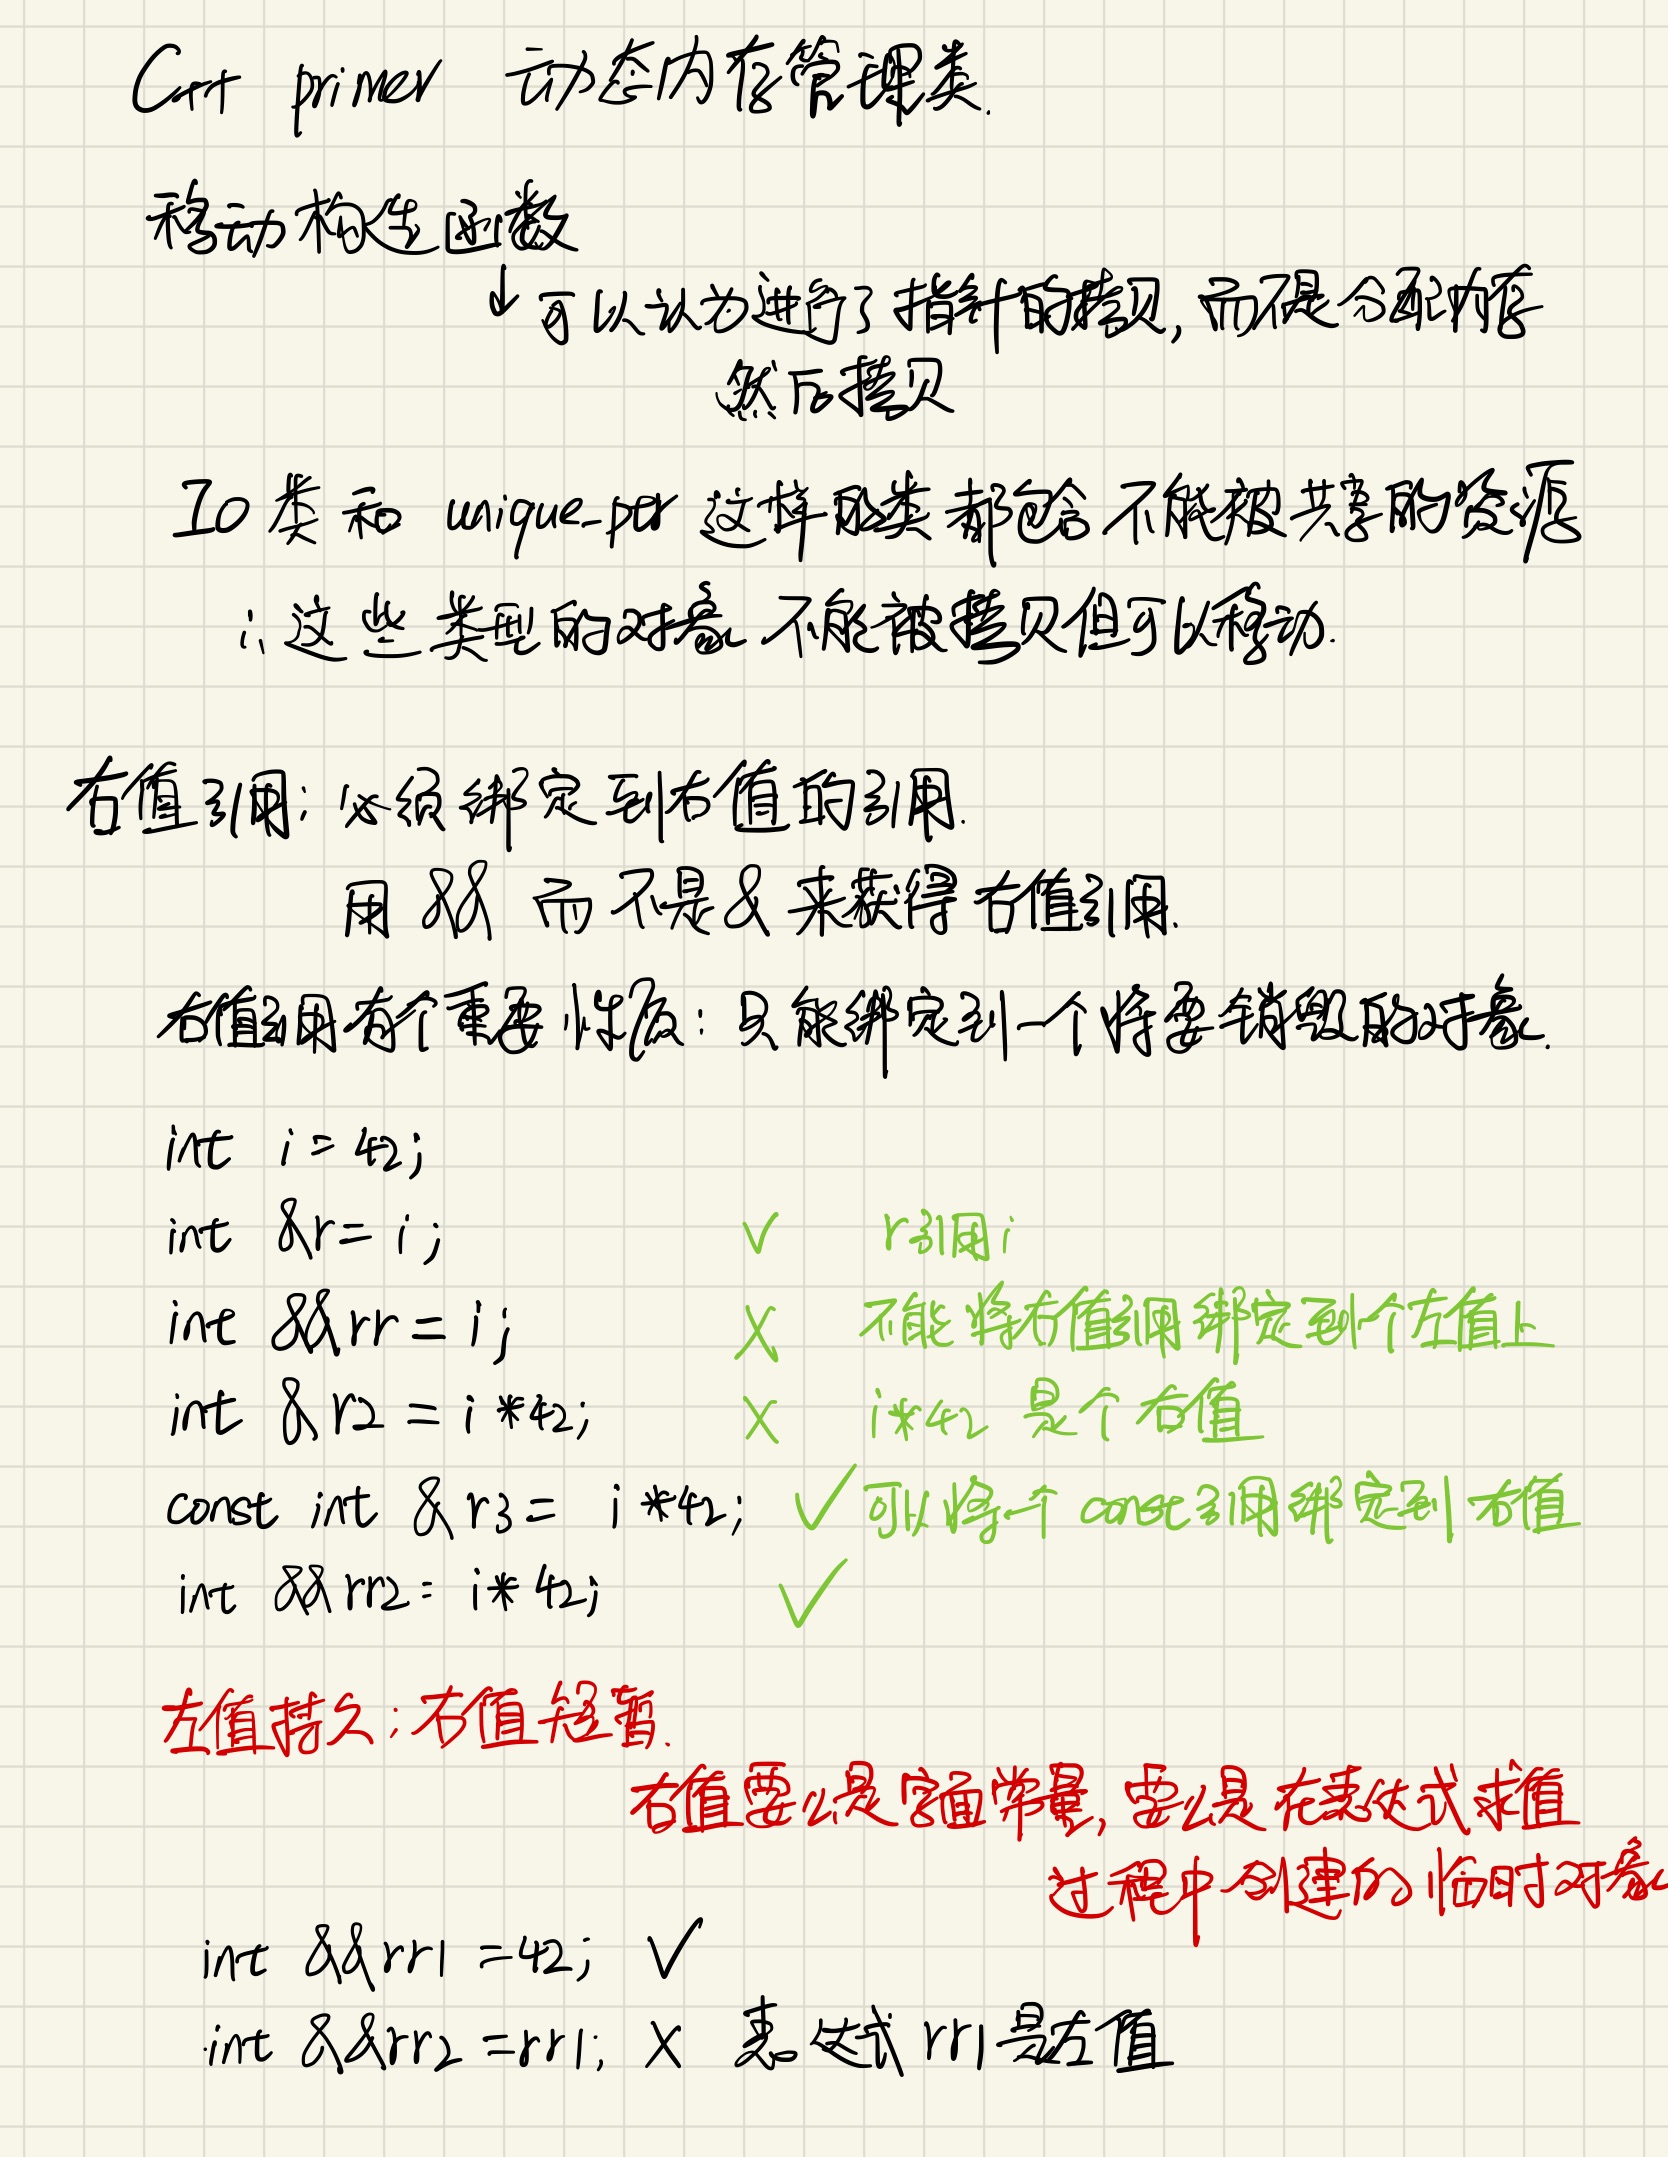 C++ primer 动态内存管理类.
移动构造函数
↓ 可以认为进行了指针的拷贝, 而不是分配内存
然后拷贝
IO类和 unique_ptr 这样的类都包含不能被共享的资源
∴ 这些类型的对象不能被拷贝但可以移动.
右值引用: 必须绑定到右值的引用.
用 && 而不是 & 来获得右值引用.
右值引用有个重要性质: 只能绑定到一个将要销毁的对象.
int i = 42;
int &r = i; ✓ r引用i
int &&rr = i; X 不能将右值引用绑定到个左值上
int &r2 = i*42; X i*42 是个右值
const int &r3 = i*42; ✓ 可以将一个const引用绑定到右值
int &&rr2 = i*42; ✓
左值持久; 右值短暂.
右值要么是字面常量, 要么是在表达式求值
过程中创建的临时对象
int &&rr1 = 42; ✓
int &&rr2 = rr1; X 表达式rr1是左值